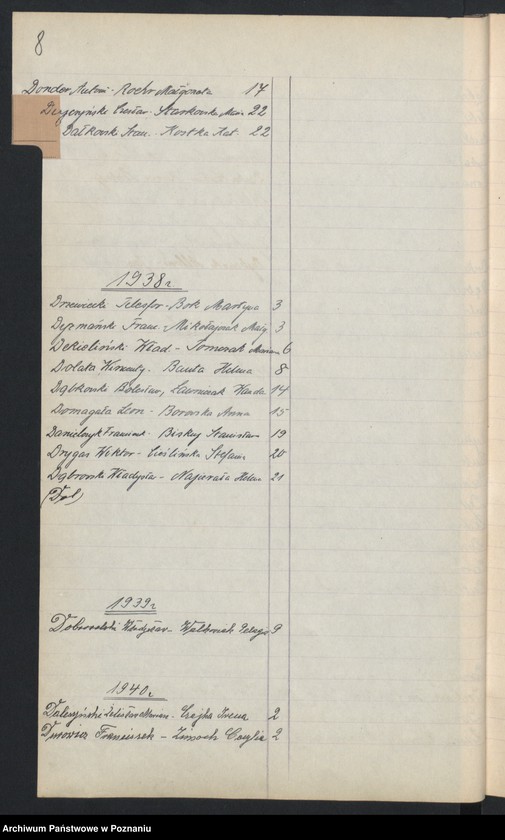 8
Donder Antoni - Roehr Małgorzata 17
Czesław - Starkowska Mar. 22
Dałkowsk Stan. - Kostka Kat. 22
1938 r.
Drzewiecki Telesfor - Bok Martyna 3
Dyzmański Franc. - Mikołajczak Małg. 3
Dekieliński Wład - Pomorak Mariann 6
Dolata Wincenty - Bauta Helena 8
Dąbkowski Bolesław, Ławniczak Wanda 14
Domagała Leon - Borowska Anna 15
Danielczyk Franciszek - Biskup Stanisława 19
Drygas Wiktor - Cieślińska Stefania 20
Dąbrowski Władysław - Najerała Helena 21
1939 r
Dobrowolski Władysław - Pelagja 9
1940 r.
Marian - Czajka Irena 2
Franciszek - Cecylia 2
Archiwum Państwowe w Poznaniu